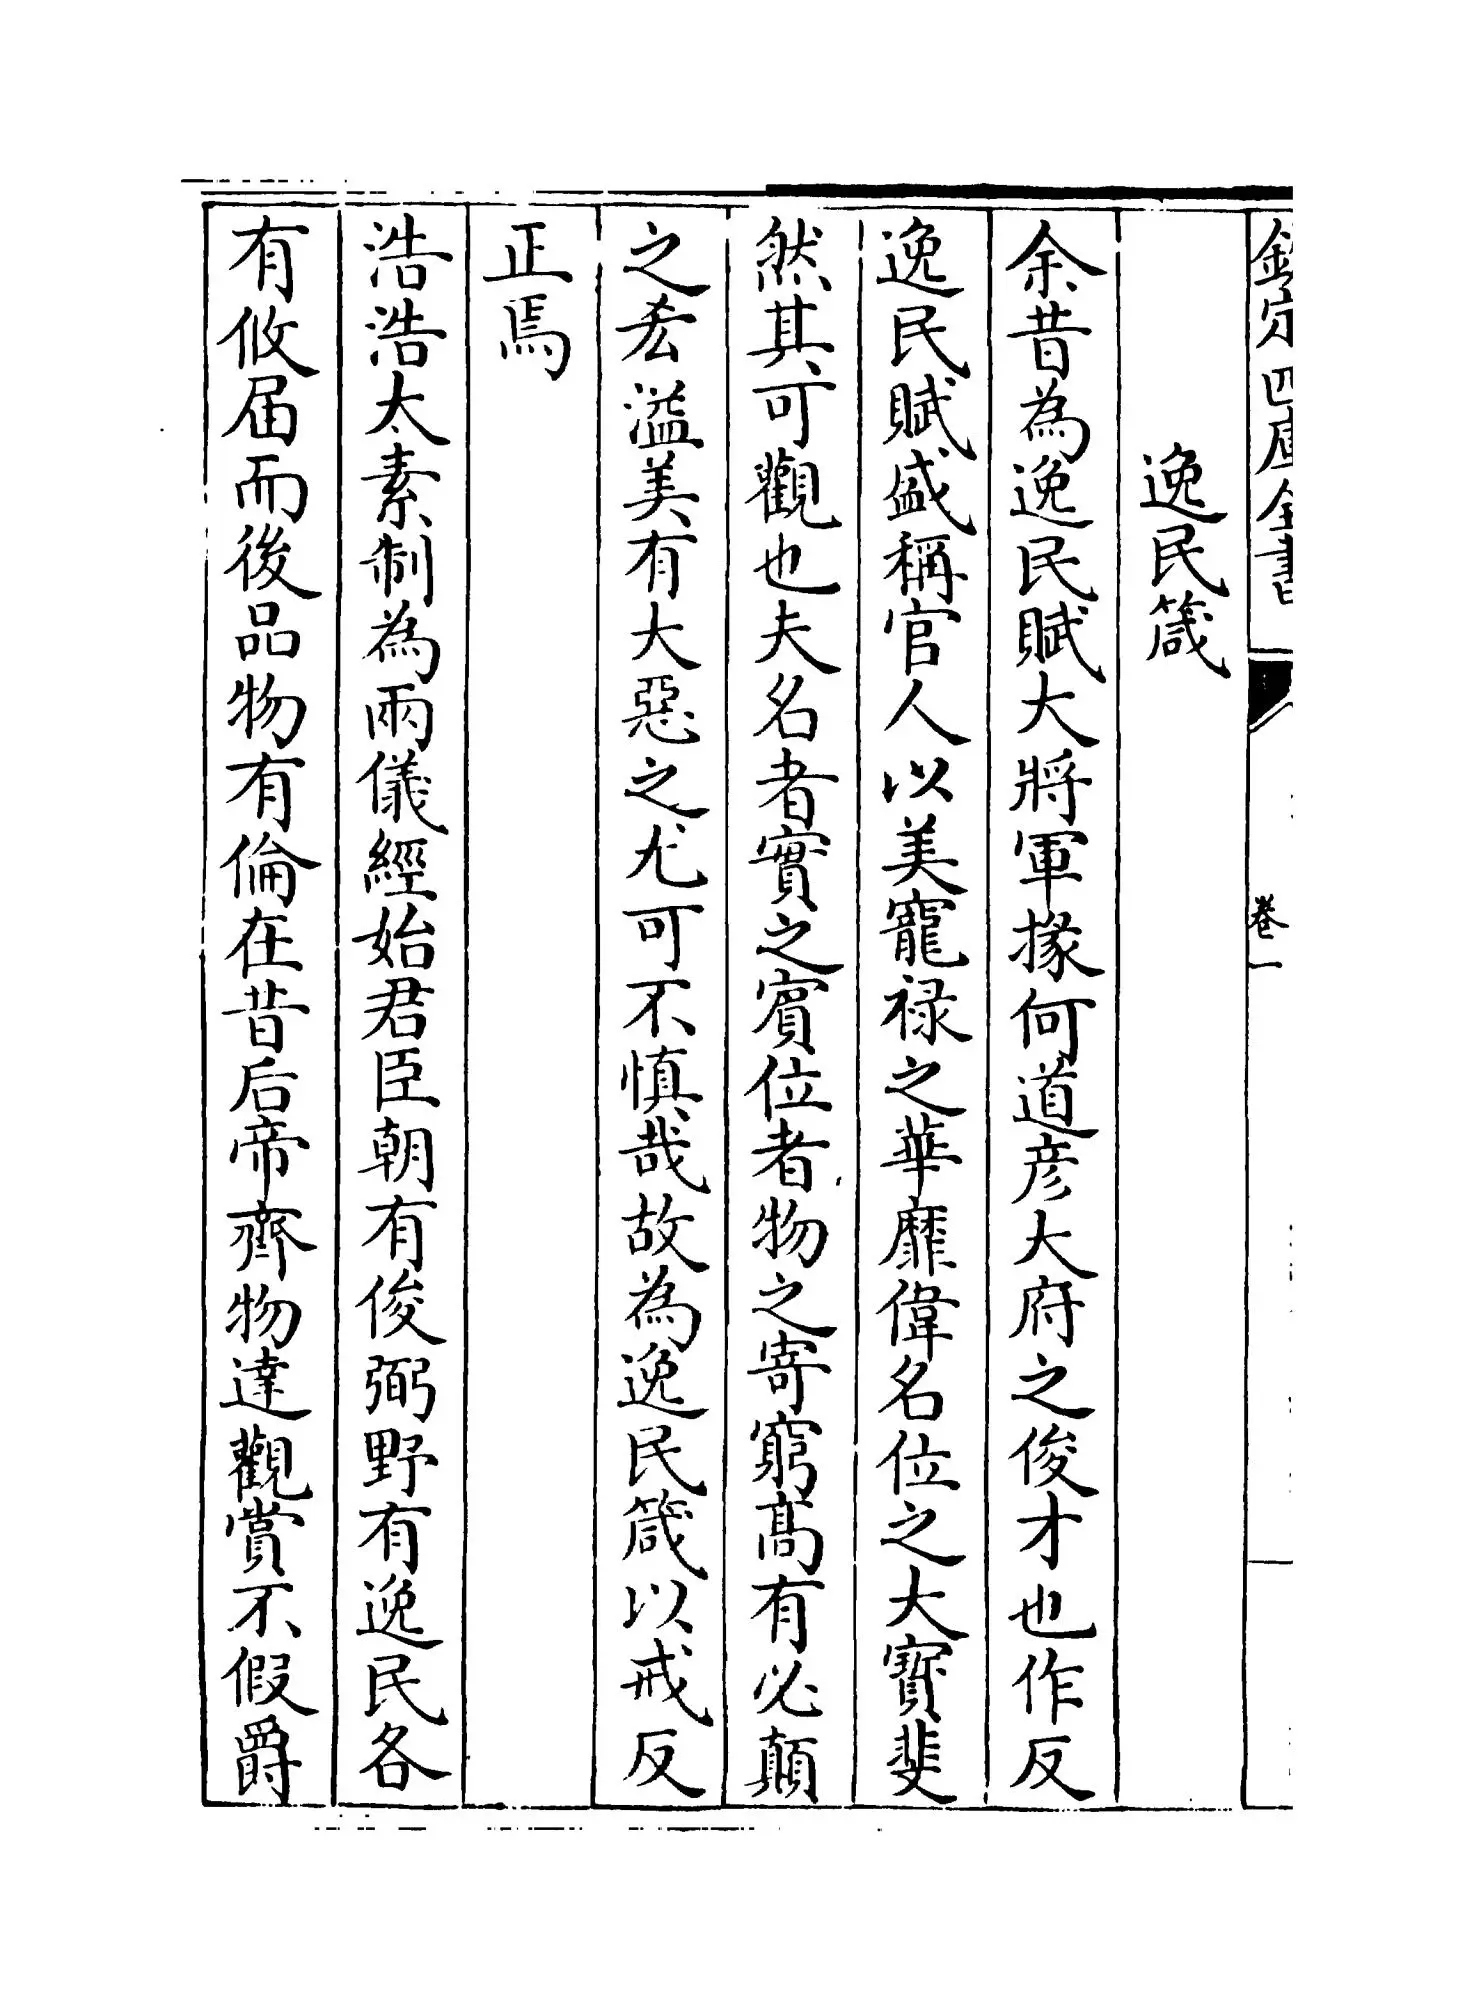 欽定四庫全書
卷一
逸民箴
余昔為逸民賦大將軍掾何道彦大府之俊才也作反
逸民賦盛稱官人以美寵禄之華靡偉名位之大寳斐
然其可觀也夫名者實之賔位者物之寄窮髙有必顛
之𠫤溢美有大惡之尤可不慎哉故為逸民箴以戒反
正焉
浩浩太素制為兩儀經始君臣朝有俊弼野有逸民各
有攸届而後品物有倫在昔后帝齊物達觀賞不假爵